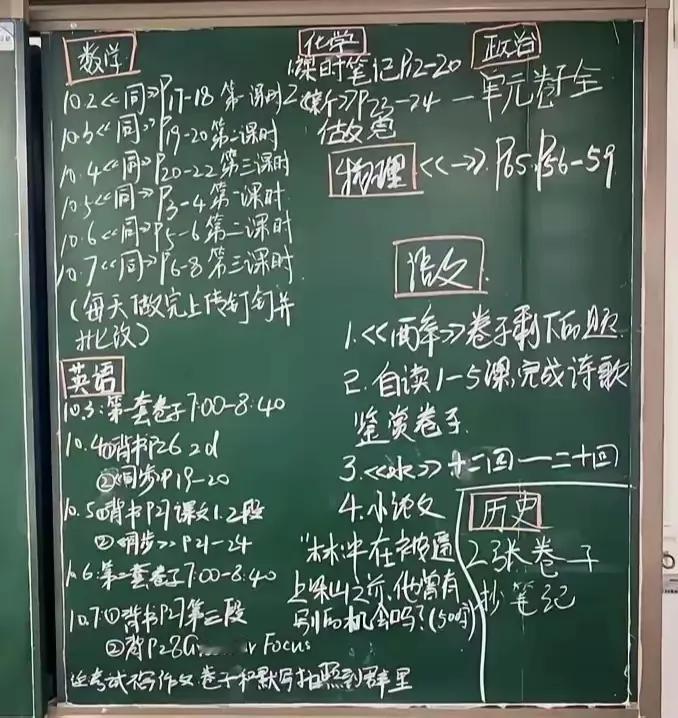 数学
10.2<<同>>P17-18 第一课时
10.3<<同>>P19-20第二课时
10.4<<同>>P20-22第三课时
10.5<<同>>P3-4第一课时
10.6<<同>>P5-6第二课时
10.7<<同>>P6-8第三课时
(每天做完上传钉钉并
批改)
英语
10.3:第一套卷子7:00-8:40
10.4①背书P26 2d
②<<同步>>P19-20
10.5①背书P27课文1.2段
②<<同步>>P21-24
10.6:第二套卷子7:00-8:40
10.7:①背书P27第三段
②背P28G Focus
考试不写作文 卷子和默写拍照到群里
化学
1课时笔记P12-20
2 >>P23-24
做完
政治
一单元卷子全
物理
<<一>>. P65.P56-59
语文
1.<< >>卷子剩下的题.
2.自读1-5课,完成诗歌
鉴赏卷子.
3.<<水>>十二回一二十回
4.小论文
"林冲在被逼
上梁山之前,他曾有
别的机会吗?(500字)
历史
2张卷子
抄笔记